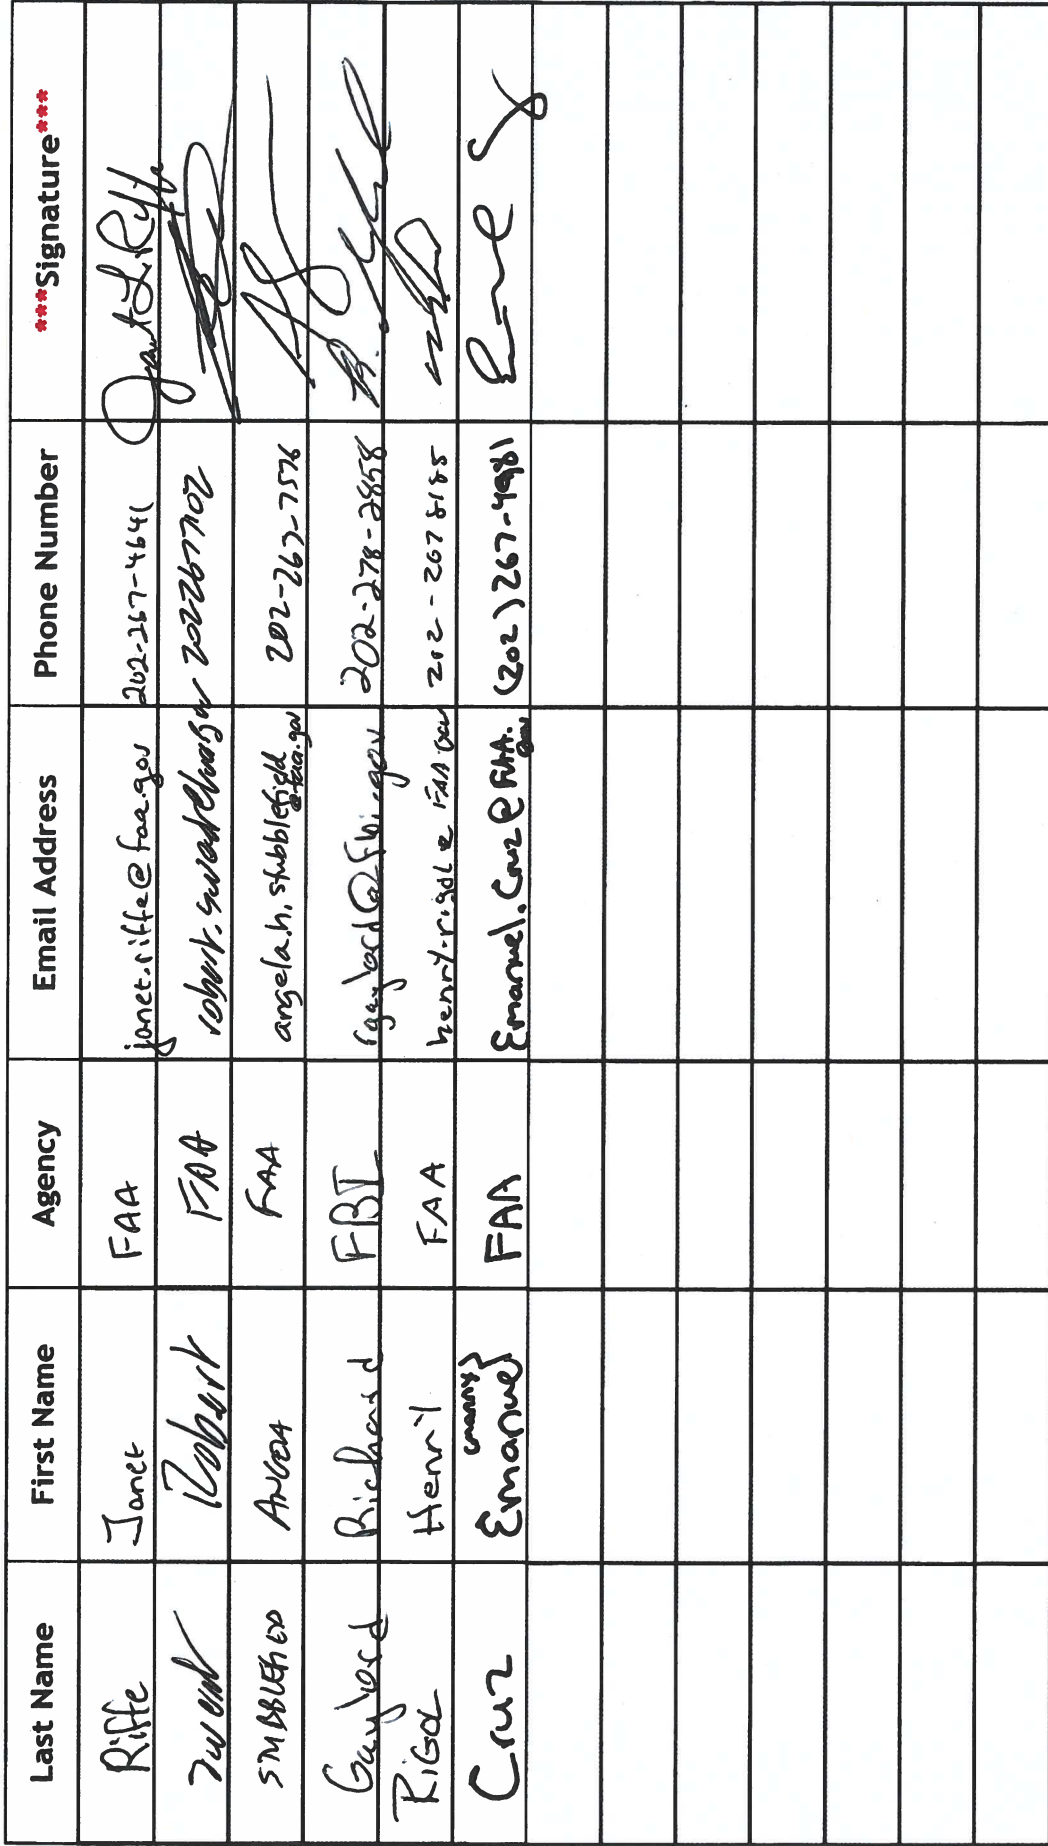 Last Name First Name Agency Email Address Phone Number ***Signature***
Riffe Janet FAA janet.riffe@faa.gov 202-267-4641
Robert FAA 2022677102
STUBBLEFIELD ANGELA FAA angela.h.stubblefield@faa.gov 202-267-7576
Gaylord Richard FBI rgaylord@fbi.gov 202-278-2858
RiGol Henry FAA henry.rigol@FAA.gov 202-2678185
Cruz Emanuel (manny) FAA Emanuel.Cruz@FAA.gov (202)267-4981